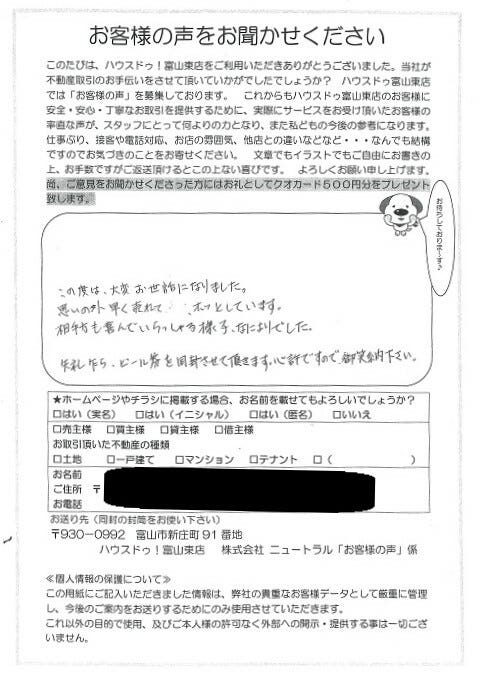 お客様の声をお聞かせください
このたびは、ハウスドゥ！富山東店をご利用いただきありがとうございました。当社が
不動産取引のお手伝いをさせて頂いていかがでしたでしょうか？　ハウスドゥ富山東店
では「お客様の声」を募集しております。　これからもハウスドゥ富山東店のお客様に
安全・安心・丁寧なお取引を提供するために、実際にサービスをお受け頂いたお客様の
率直な声が、スタッフにとって何よりの力となり、また私どもの今後の参考になります。
仕事ぶり、接客や電話対応、お店の雰囲気、他店との違いなどなど・・・なんでも結構
ですのでお気づきのことをお寄せください。　文章でもイラストでもご自由にお書きの
上、お手数ですがご返送頂けるとこの上ない喜びです。　よろしくお願い申し上げます。
尚、ご意見をお聞かせくださった方にはお礼としてクオカード５００円分をプレゼント
致します。
お待ちしておりま～す♪
この度は、大変お世話になりました。
思いの外早く売れて ホッとしています。
相手も喜んでいらっしゃる様子、なによりでした。
失礼乍ら、ビール券を同封させて頂きます。心許ですので御笑納下さい。
★ホームページやチラシに掲載する場合、お名前を載せてもよろしいでしょうか？
□はい（実名）　□はい（イニシャル）　□はい（匿名）　□いいえ
□売主様　□買主様　□貸主様　□借主様
お取引頂いた不動産の種類
□土地　□一戸建て　□マンション　□テナント　□（　　　　　　）
お名前
ご住所　〒
お電話
お送り先（同封の封筒をお使い下さい）
〒930-0992　富山市新庄町 91 番地
ハウスドゥ！富山東店　株式会社 ニュートラル「お客様の声」係
≪個人情報の保護について≫
この用紙にご記入いただきました情報は、弊社の貴重なお客様データとして厳重に管理
し、今後のご案内をお送りするためにのみ使用させていただきます。
これ以外の目的で使用、及びご本人様の許可なく外部への開示・提供する事は一切ござ
いません。